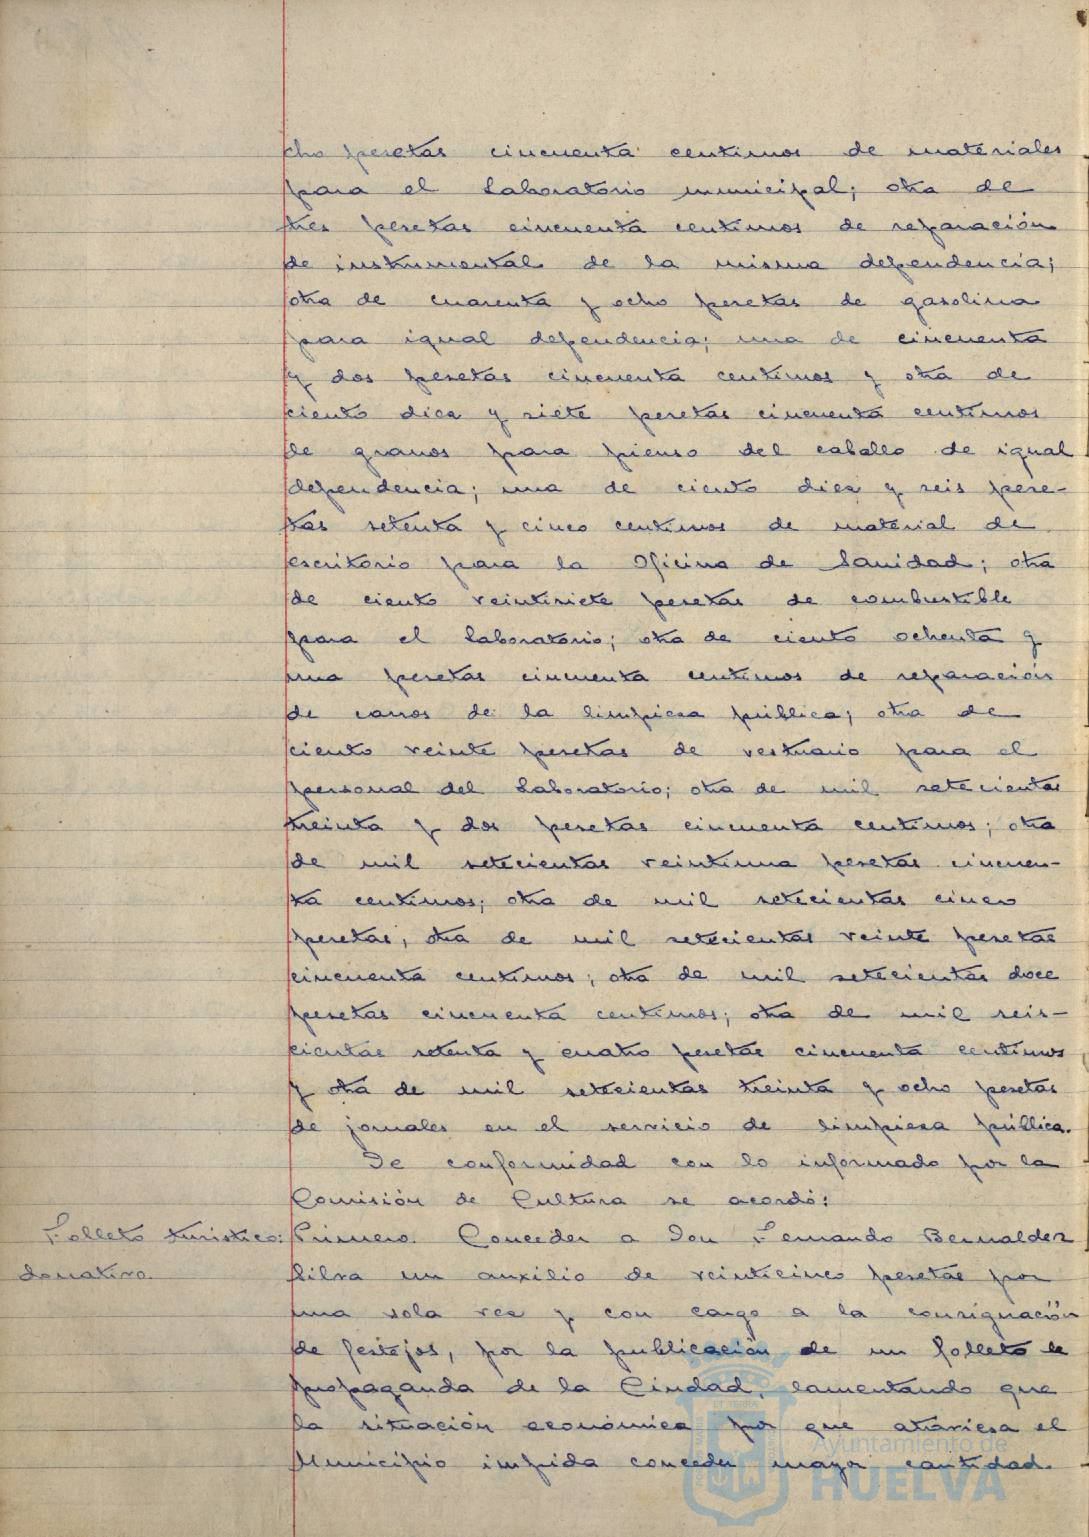 cho pesetas cincuenta centimos de materiales
para el Laboratorio municipal; otra de
tres pesetas cincuenta centimos de reparación
de instrumental de la misma dependencia;
otra de cuarenta y ocho pesetas de gasolina
para igual dependencia; una de cincuenta
y dos pesetas cincuenta centimos y otra de
ciento diez y siete pesetas cincuenta centimos
de granos para pienso del caballo de igual
dependencia; una de ciento diez y seis pese-
tas setenta y cinco centimos de material de
escritorio para la Oficina de Sanidad; otra
de ciento veintisiete pesetas de combustible
para el Laboratorio; otra de ciento ochenta y
una pesetas cincuenta centimos de reparación
de carros de la limpieza pública; otra de
ciento veinte pesetas de vestuario para el
personal del Laboratorio; otra de mil setecientas
treinta y dos pesetas cincuenta centimos; otra
de mil setecientas veintiuna pesetas cincuen-
ta centimos; otra de mil setecientas cinco
pesetas; otra de mil setecientas veinte pesetas
cincuenta centimos; otra de mil setecientas doce
pesetas cincuenta centimos; otra de mil seis-
cientas setenta y cuatro pesetas cincuenta centimos
y otra de mil setecientas treinta y ocho pesetas
de jornales en el servicio de limpieza pública.
De conformidad con lo informado por la
Comisión de Cultura se acordó:
Folleto turistico: Primero. Conceder a Don Fernando Bernaldez
donativo. Silva un auxilio de veinticinco pesetas por
una sola vez y con cargo a la consignación
de festejos, por la publicación de un folleto de
propaganda de la Ciudad, lamentando que
la situación económica por que atraviesa el
Municipio impida conceder mayor cantidad.
Ayuntamiento de
HUELVA